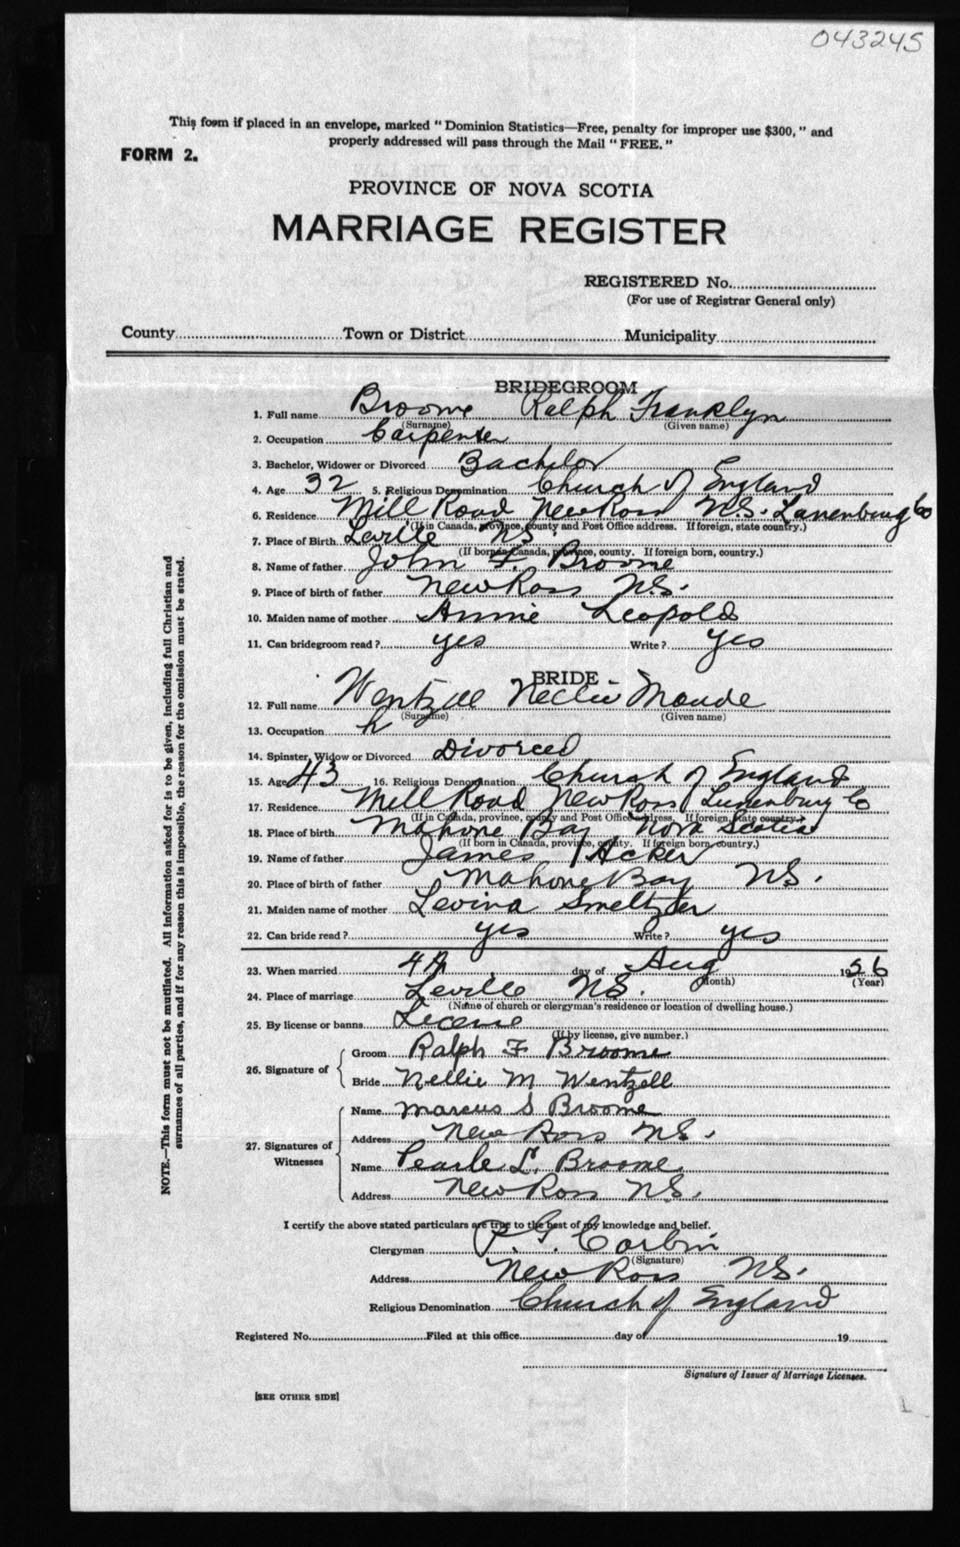 043245
This form if placed in an envelope, marked "Dominion Statistics—Free, penalty for improper use $300," and
properly addressed will pass through the Mail "FREE."
FORM 2.
PROVINCE OF NOVA SCOTIA
MARRIAGE REGISTER
REGISTERED No.
(For use of Registrar General only)
County Town or District Municipality
BRIDEGROOM
1. Full name Broome Ralph Franklyn
(Surname) (Given name)
2. Occupation Carpenter
3. Bachelor, Widower or Divorced Bachelor
4. Age 32 5. Religious Denomination Church of England
6. Residence Mill Road New Ross N.S. Lunenburg Co
(If in Canada, province, county and Post Office address. If foreign, state country.)
7. Place of Birth Leville NS.
(If born in Canada, province, county. If foreign born, country.)
8. Name of father John F. Broome
9. Place of birth of father New Ross N.S.
10. Maiden name of mother Annie Leopold
11. Can bridegroom read? yes Write? yes
BRIDE
12. Full name Wentzell Nellie Maude
(Surname) (Given name)
13. Occupation h
14. Spinster, Widow or Divorced Divorced
15. Age 43 16. Religious Denomination Church of England
17. Residence Mill Road New Ross Lunenburg Co
(If in Canada, province, county and Post Office address. If foreign, state country.)
18. Place of birth Mahone Bay Nova Scotia
(If born in Canada, province, county. If foreign born, country.)
19. Name of father James Acker
20. Place of birth of father Mahone Bay NS.
21. Maiden name of mother Levina Smeltzer
22. Can bride read? yes Write? yes
23. When married 4th day of Aug 1956
(Month) (Year)
24. Place of marriage Leville NS.
(Name of church or clergyman's residence or location of dwelling house.)
25. By license or banns Licens
(If by license, give number.)
26. Signature of
Groom Ralph F Broome
Bride Nellie M Wentzell
27. Signatures of Witnesses
Name Marcus S Broome
Address New Ross NS.
Name Pearle L. Broome
Address New Ross NS.
I certify the above stated particulars are true to the best of my knowledge and belief.
Clergyman R. G. Corbin
(Signature)
Address New Ross NS.
Religious Denomination Church of England
Registered No. Filed at this office day of 19
Signature of Issuer of Marriage Licenses.
[SEE OTHER SIDE]
NOTE.—This form must not be mutilated. All information asked for is to be given, including full Christian and
surnames of all parties, and if for any reason this is impossible, the reason for the omission must be stated.